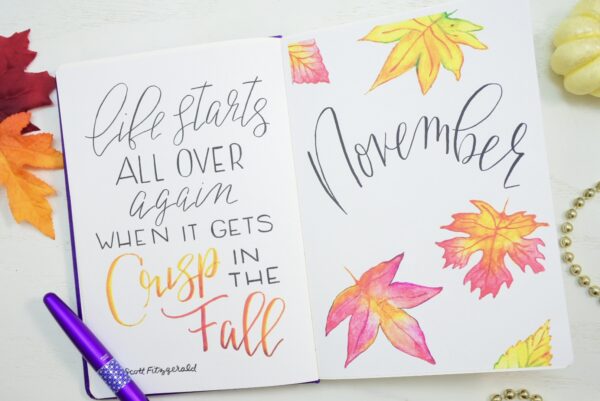 life starts
ALL OVER
again
WHEN IT GETS
Crisp IN
THE
Fall
Scott Fitzgerald
November